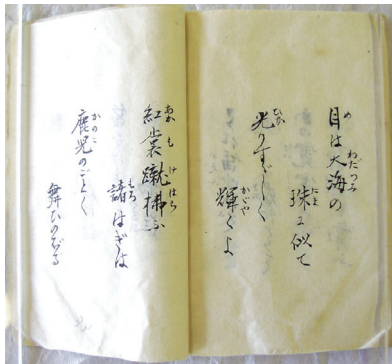 目は大海の
珠に似て
光りすゞしく
輝くよ
紅裳蹴拂ふ
諸はぎは
鹿児のごとく
舞ひのぼる